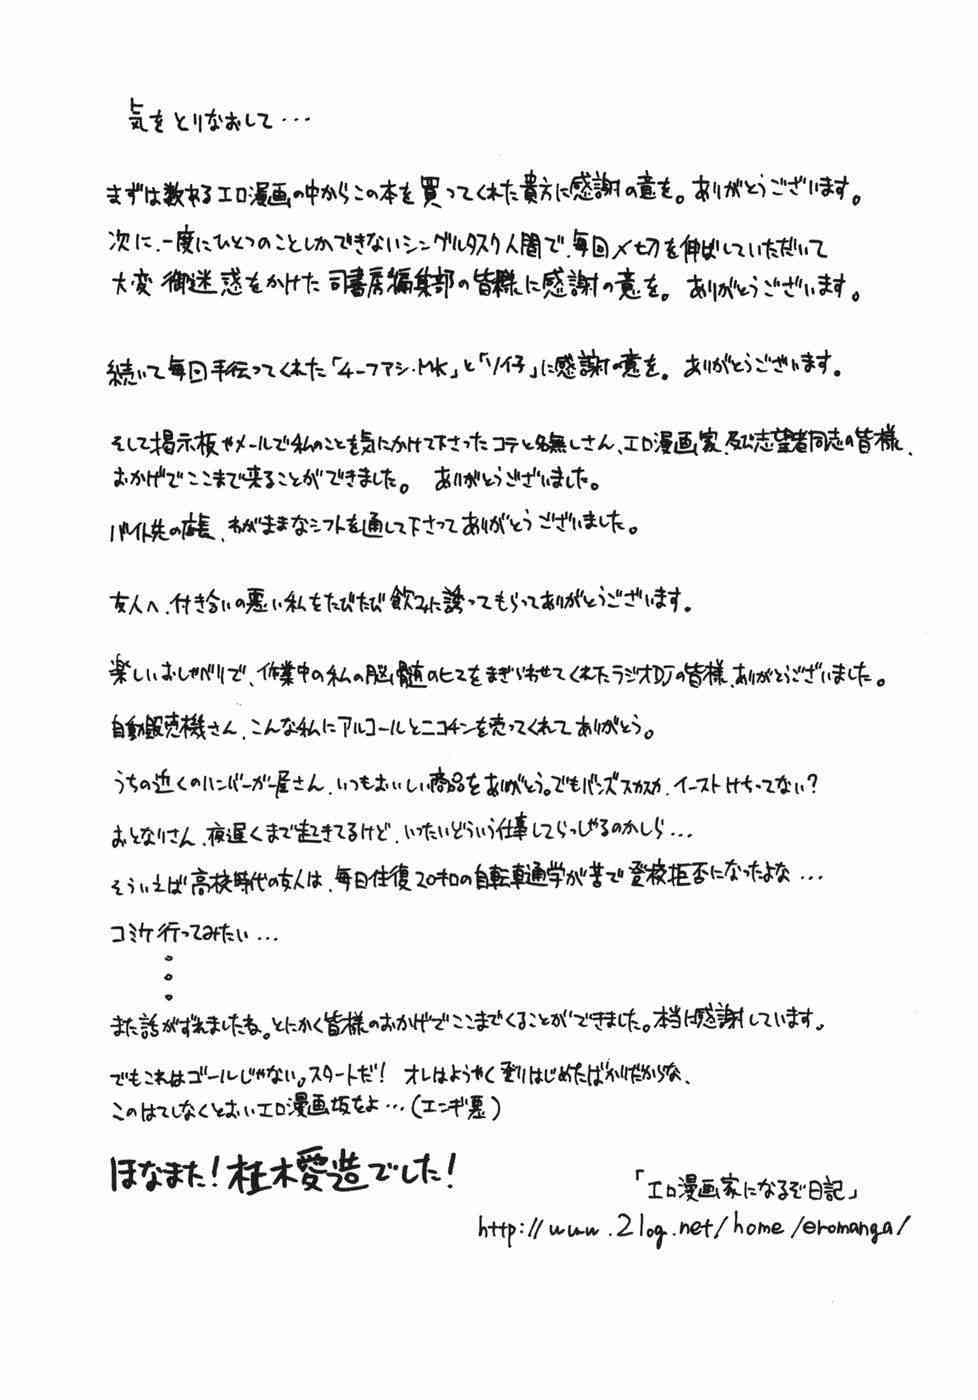 気をとりなおして…
まずは数ある エロ漫画の中からこの本を買ってくれた貴方に感謝の意を。ありがとうございます。
次に、一度にひとつのことしかできないシングルタスク人間で、毎回〆切を伸ばしていただいて
大変御迷惑をかけた司書房編集部の皆様に感謝の意を。ありがとうございます。
続いて毎回手伝ってくれた「4-ファシ・MK」と「ソイ子」に感謝の意を。ありがとうございます。
そして掲示板やメールで私のことを気にかけて下さったコテと名無しさん、エロ漫画家、及び志望者同志の皆様、
おかげでここまで来ることができました。 ありがとうございました。
バイト先の店長、わがままなシフトを通して下さってありがとうございました。
友人へ、付き合いの悪い私をたびたび飲みに誘ってもらってありがとうございます。
楽しいおしゃべりで、作業中の私の脳髄のヒマをまぎらわせてくれたラジオDJの皆様、ありがとうございました。
自動販売機さん、こんな私にアルコールとニコチンを売ってくれてありがとう。
うちの近くのハンバーガー屋さん、いつもおいしい商品をありがとう。でもバンズスカスカ、イーストけちってない?
おとなりさん、夜遅くまで起きてるけど、いったいどういう仕事してらっしゃるのかしら…
そういえば高校時代の友人は、毎日往復20キロの自転車通学が苦で登校拒否になったよな…
コミケ行ってみたい…
。
。
。
また話がずれましたね。とにかく皆様のおかげでここまでくることができました。本当に感謝しています。
でもこれはゴールじゃない。スタートだ! オレはようやく登りはじめたばかりだからな、
このはてしなくとおいエロ漫画坂をよ…(エンギ悪)
ほなまた!柱木愛造でした!
「エロ漫画家になるぞ日記」
http://www.2log.net/home/eromanga/